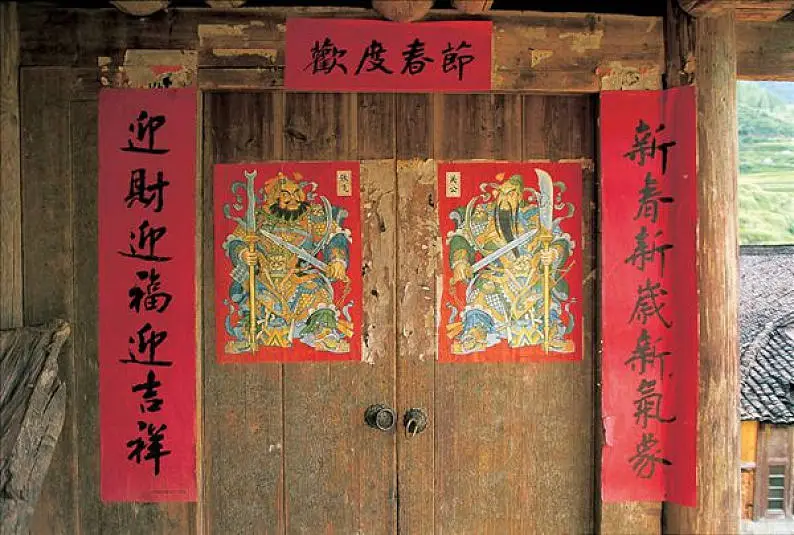 歡度春節
新春新歲新氣象
迎財迎福迎吉祥
关公
张飞